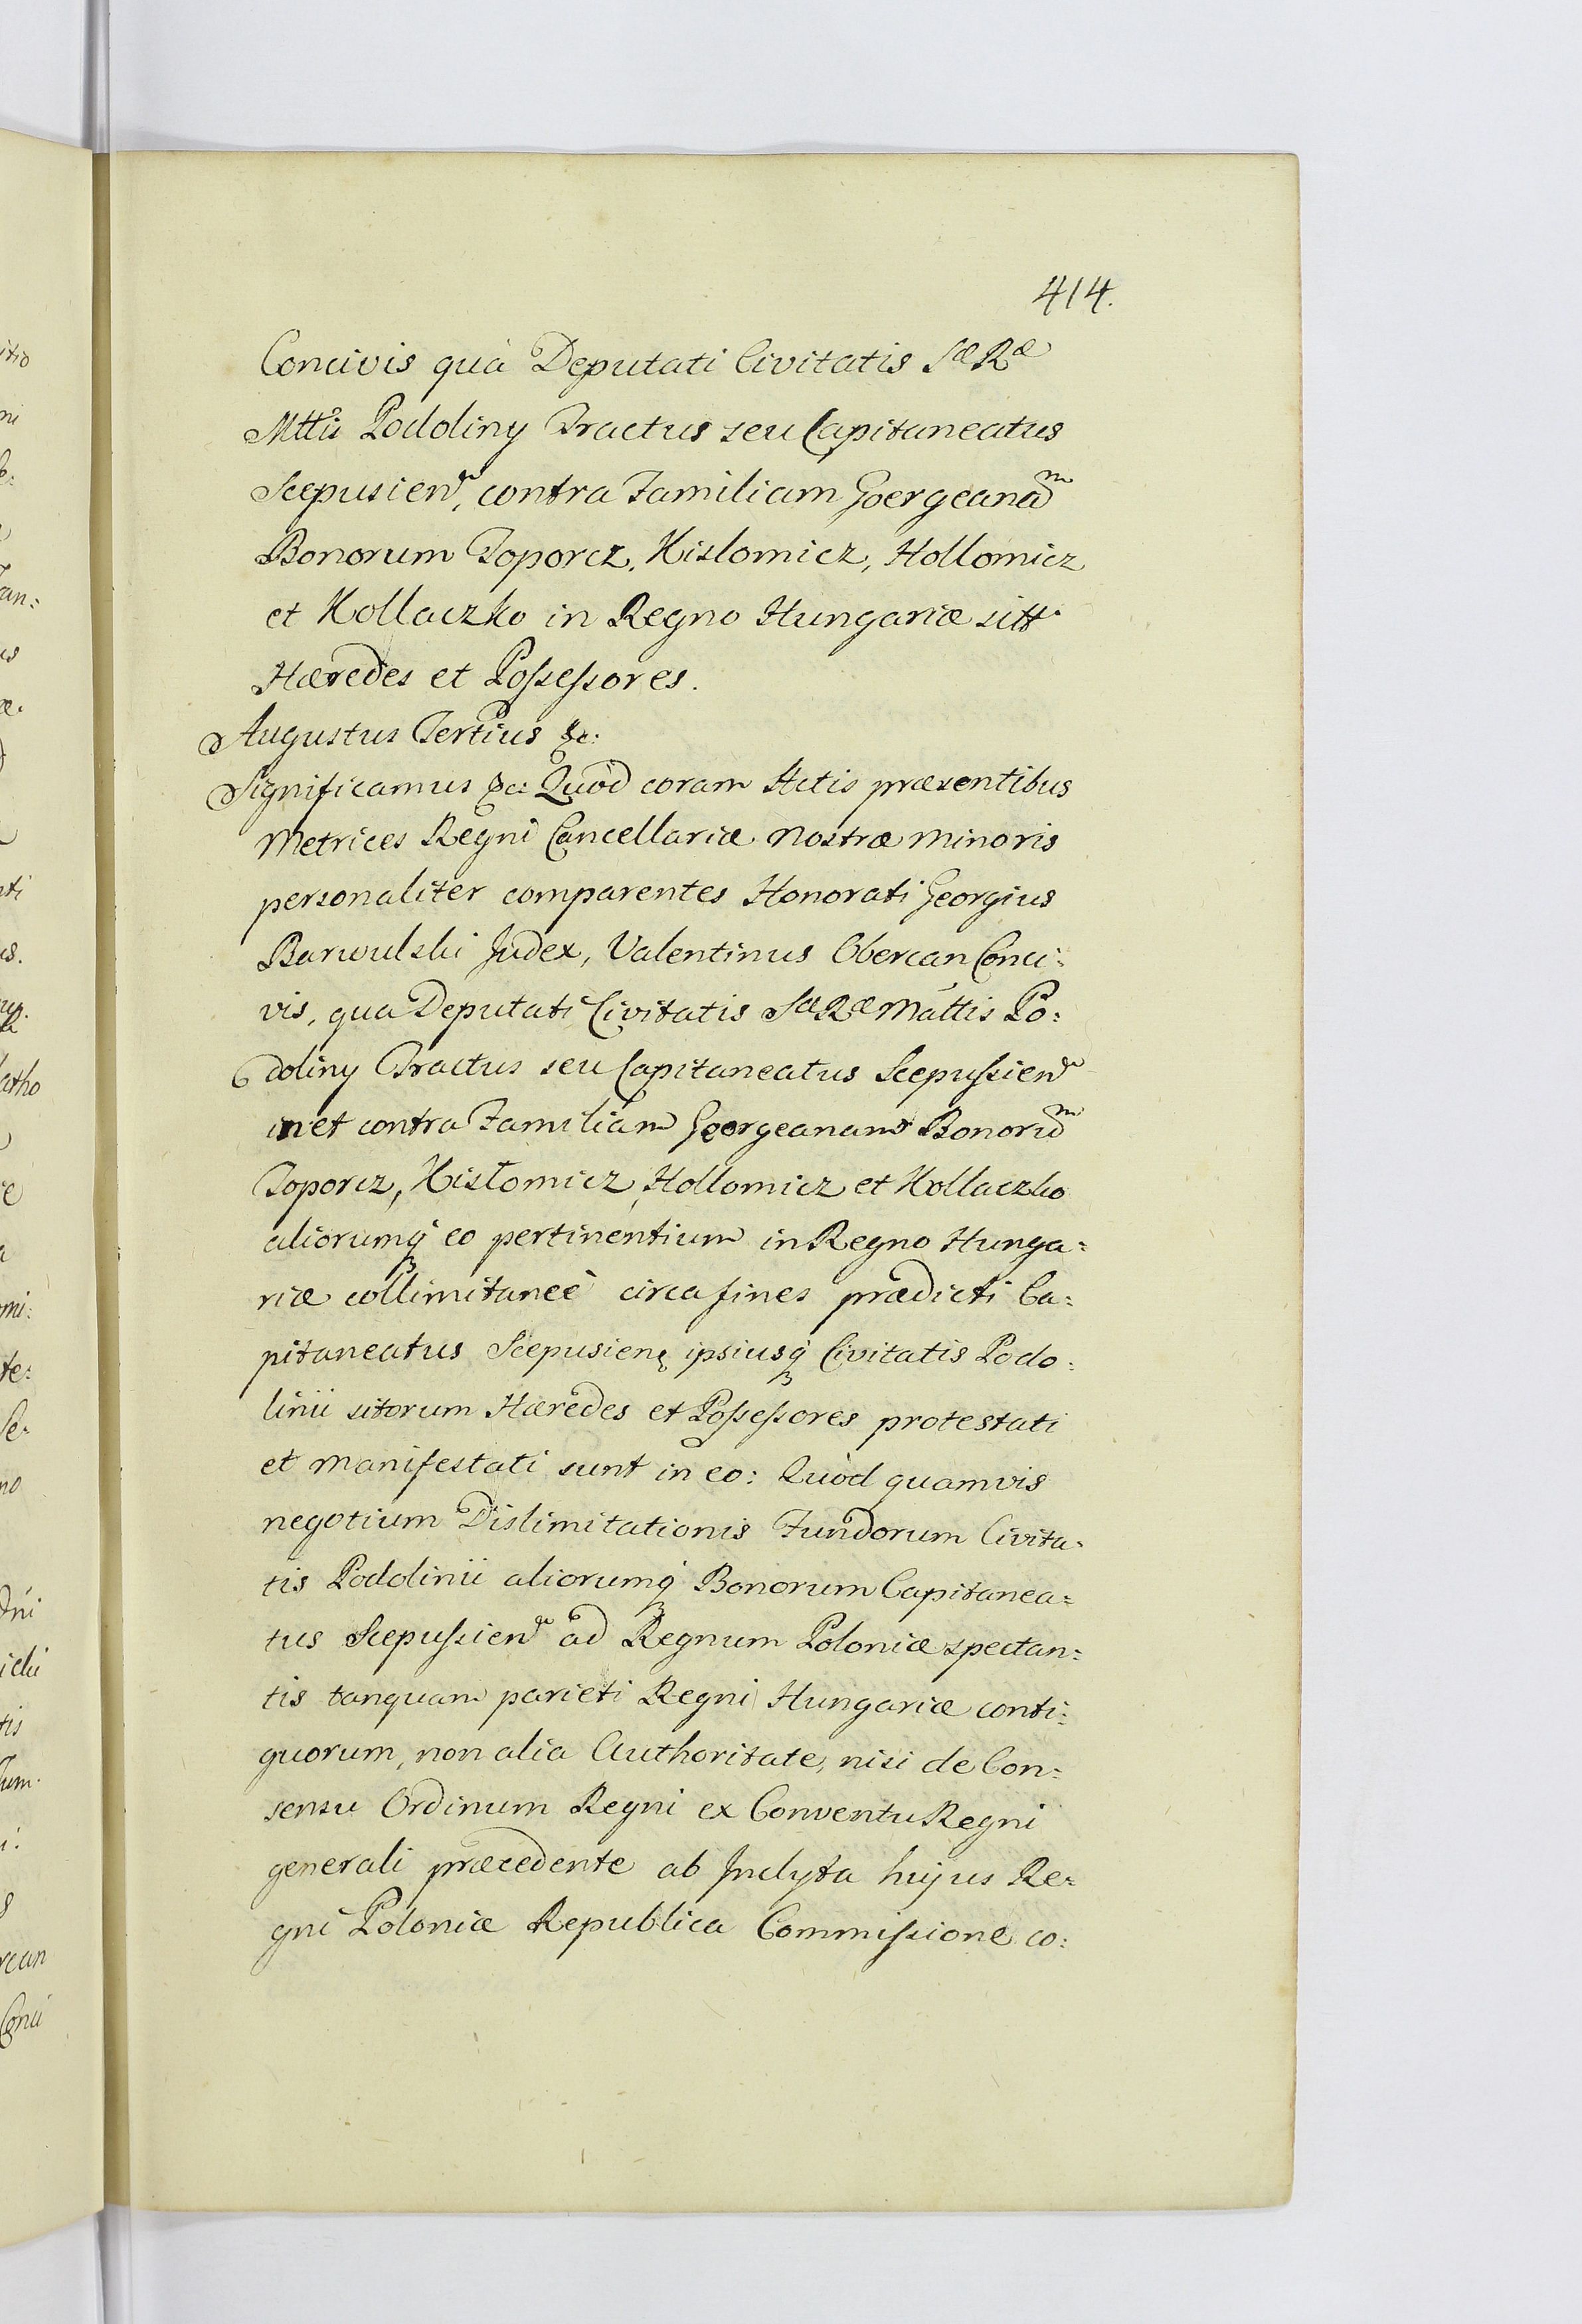 414.
Concivis quà Deputati Civitatis Sæ Ræ
Mttis Podoliny Tractus seu Capitaneatus
Scepusien, contra Familiam Goergeanam
Bonorum Toporcz, Kislomicz, Hollomicz
et Kollaczko in Regno Hungariæ sitt.
Hæredes et Possessores.
Augustus Tertius &c:
Significamus &c: Quòd coram Actis præsentibus
Metrices Regni Cancellariæ Nostræ minoris
personaliter comparentes Honorati Georgius
Barwulski Judex, Valentinus Obercan Conci:
vis, qua Deputati Civitatis Sæ Ræ Mattis Po:
doliny Tractus seu Capitaneatus Scepussien
in et contra Familiam Georgeanam Bonorum
Toporcz, Kislomicz, Hollomicz et Kollaczko
aliorumq eo pertinentium in Regno Hunga:
riæ collimitaneè circa fines prædicti Ca:
pitaneatus Scepusien ipsiusq Civitatis Podo:
linii sitorum Hæredes et Possessores protestati
et manifestati sunt in eo: Quòd quamvis
negotium Dislimitationis Fundorum Civita:
tis Podolinii aliorumq Bonorum Capitanea:
tus Scepussien ad Regnum Poloniæ spectan:
tis tanquam parieti Regni Hungariæ conti:
guorum, non alia Authoritate, nisi de Con:
sensu Ordinum Regni ex Conventu Regni
generali præcedente ab Inclyta hujus Re:
gni Poloniæ Republica Commissione co: